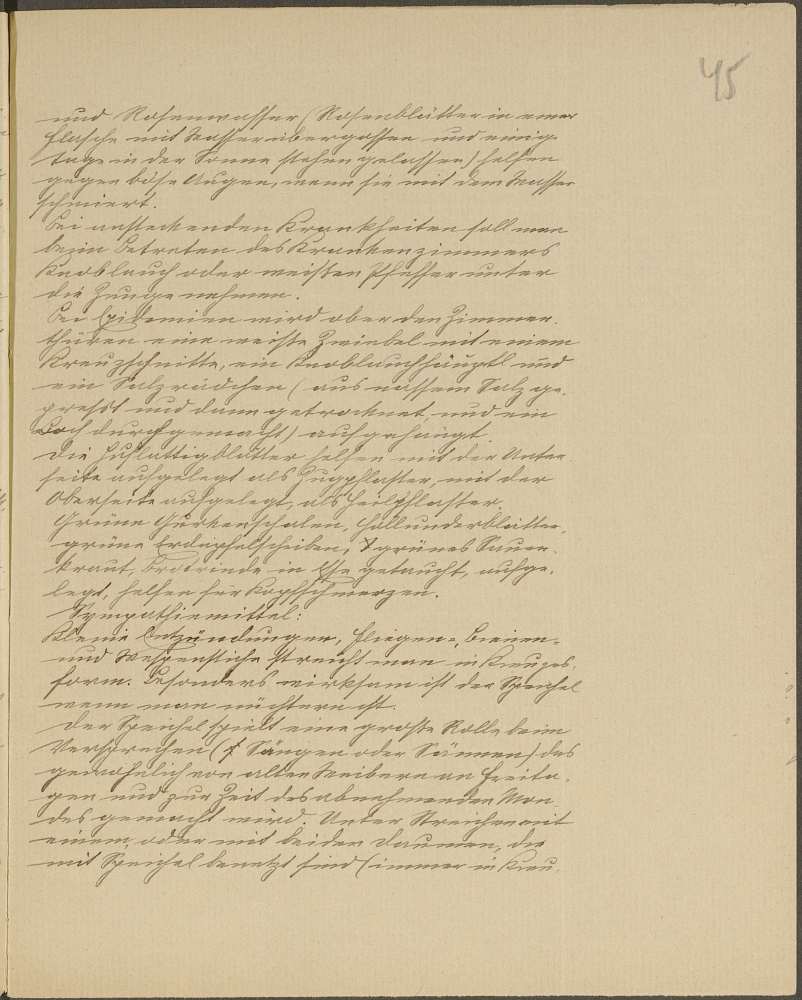 45
und Rosenwasser (Rosenblätter in einer
Flasche mit Wasser übergossen und einige
Tage in der Sonne stehen gelassen) helfen
gegen böse Augen, wenn sie mit dem Wasser
schmiert.
Bei ansteckenden Krankheiten soll man
beim Betreten des Krankenzimmers
Knoblauch oder weißen Pfeffer unter
die Zunge nehmen.
Bei Epidemien wird ober den Zimmer-
thüren eine weiße Zwiebel mit einem
Kreuzschnitte, ein Knoblauchhäuptl und
ein Salzrädchen (aus nassem Salz ge-
presst und dann getrocknet, und ein
Loch durchgemacht) aufgehängt.
Die Huflattigblätter helfen mit der Unter-
seite aufgelegt als Zugpflaster, mit der
Oberseite aufgelegt, als Heilpflaster.
Grüne Gurkenschalen, Hollunderblätter,
grüne Erdäpfelscheiben, grünes Sauer-
kraut, Brotrinde in Essig getaucht, aufge-
legt, helfen für Kopfschmerzen.
Sympathiemittel:
Kleine Entzündungen, Fliegen-, Bienen-
und Wespenstiche streicht man in Kreuzes-
form. Besonders wirksam ist der Speichel
wenn man nüchtern ist.
Der Speichel spielt eine große Rolle beim
Versprechen ( oder ) das
gewöhnlich von alten Weibern an Freita-
gen und zur Zeit des abnehmenden Mon-
des gemacht wird. Unter Streichen mit
einem, oder mit beiden Daumen, die
mit Speichel benetzt sind (immer in Kreu-